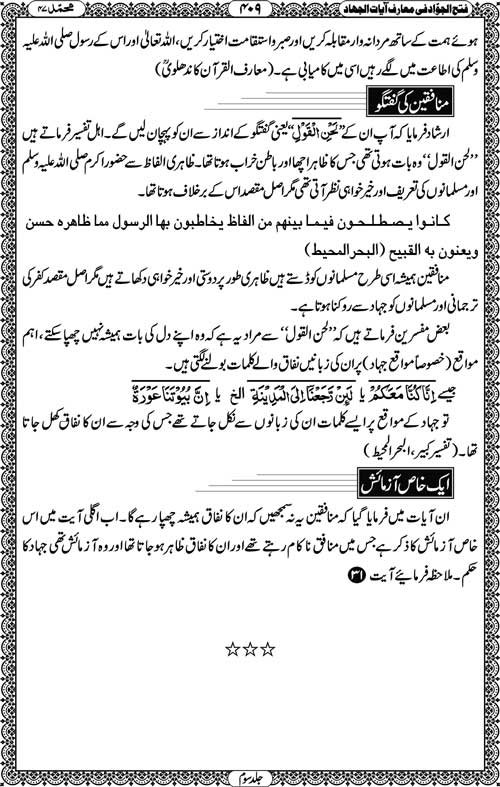 فتح الجوّاد فی معارف آیات الجهاد
۴۰۹
محمّد ۴۷
ہوئے ہمت کے ساتھ مردانہ وار مقابلہ کریں اور صبر و استقامت اختیار کریں، اللہ تعالیٰ اور اس کے رسول صلی اللہ علیہ
وسلم کی اطاعت میں لگے رہیں اسی میں کامیابی ہے۔ (معارف القرآن کاندھلویؒ)
منافقین کی گفتگو
ارشاد فرمایا کہ آپ ان کے ’’لَحْنِ الْقَوْلِ‘‘ یعنی گفتگو کے انداز سے ان کو پہچان لیں گے۔ اہل تفسیر فرماتے ہیں
’’لحن القول‘‘ وہ بات ہوتی تھی جس کا ظاہر اچھا اور باطن خراب ہوتا تھا۔ ظاہری الفاظ سے حضور اکرم صلی اللہ علیہ وسلم
اور مسلمانوں کی تعریف اور خیر خواہی نظر آتی تھی مگر اصل مقصد اس کے برخلاف ہوتا تھا۔
كانوا يصطلحون فيما بينهم من الفاظ يخاطبون بها الرسول مما ظاهره حسن
ويعنون به القبيح (البحر المحيط)
منافقین ہمیشہ اسی طرح مسلمانوں کو ڈستے ہیں ظاہری طور پر دوستی اور خیر خواہی دکھاتے ہیں مگر اصل مقصد کفر کی
ترجمانی اور مسلمانوں کو جہاد سے روکنا ہوتا ہے۔
بعض مفسرین فرماتے ہیں کہ ’’لحن القول‘‘ سے مراد یہ ہے کہ وہ اپنے دل کی بات ہمیشہ نہیں چھپا سکتے، اہم
مواقع (خصوصاً مواقع جہاد) پر ان کی زبانیں نفاق والے کلمات بولنے لگتی ہیں۔
جیسے اِنَّا كُنَّا مَعَكُمْ یا لَئِنْ رَّجَعْنَا اِلَى الْمَدِيْنَةِ الخ یا اِنَّ بُيُوْتَنَا عَوْرَةٌ
تو جہاد کے مواقع پر ایسے کلمات ان کی زبانوں سے نکل جاتے تھے جس کی وجہ سے ان کا نفاق کھل جاتا
تھا۔ (تفسیر کبیر، البحر المحیط)
ایک خاص آزمائش
ان آیات میں فرمایا گیا کہ منافقین یہ نہ سمجھیں کہ ان کا نفاق ہمیشہ چھپا رہے گا۔ اب اگلی آیت میں اس
خاص آزمائش کا ذکر ہے جس میں منافق ناکام رہتے تھے اور ان کا نفاق ظاہر ہو جاتا تھا اور وہ آزمائش تھی جہاد کا
حکم۔ ملاحظہ فرمایئے آیت ۳۱
☆☆☆
جلد سوم